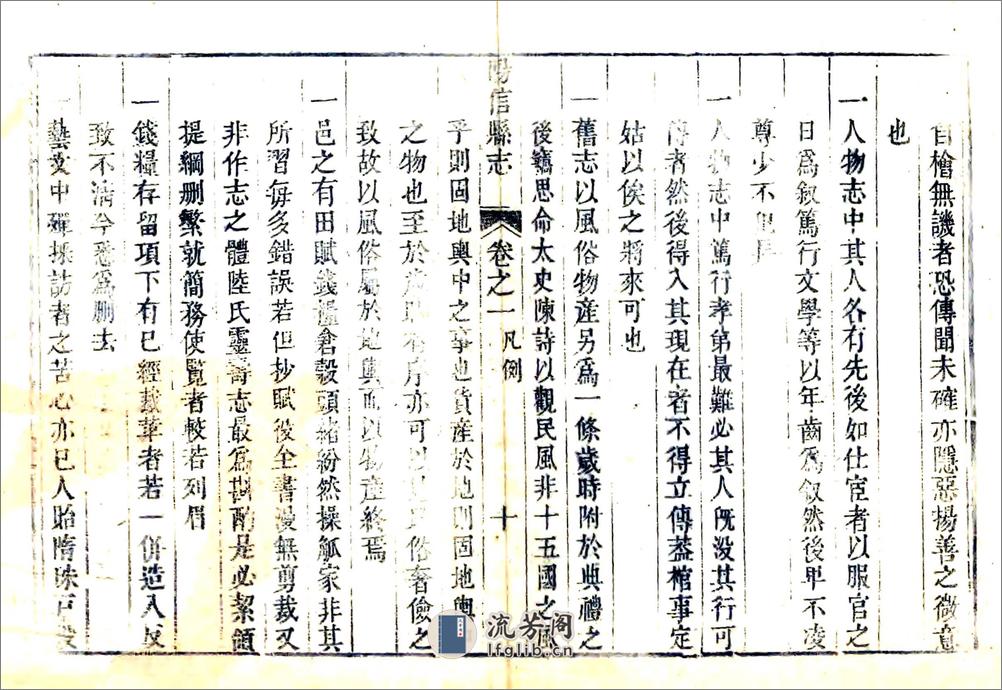 自檜無譏者恐傳聞未確亦隱惡揚善之微意
也
一人物志中其人各有先後如仕宦者以服官之
日爲敘篤行文學等以年齒爲敘然後卑不凌
尊少不
一人物志中篤行孝弟最難必其人既没其行可
得者然後得入其現在者不得立傳葢棺事定
姑以俟之將來可也
一舊志以風俗物産另爲一條歲時附於典禮之
後竊思命太史陳詩以觀民風非十五國之風
陽信縣志
卷之一 凡例
十
乎則固地輿中之事也貨産於地則固地輿
之物也至於 亦可以 俗奢儉之
致故以風俗屬於地輿而以物産終焉
一邑之有田賦錢糧倉穀頭緒紛然操觚家非其
所習毎多錯誤若但抄賦役全書漫無剪裁又
非作志之體陸氏靈壽志最爲斟酌是必絜領
提綱删繁就簡務使覧者較若列眉
一錢糧存留項下有已經裁革者若一併造入反
致不淸今悉爲删去
一藝文中殫採訪者之苦心亦已人貽隋珠戸
流芳阁
lfglib.cn